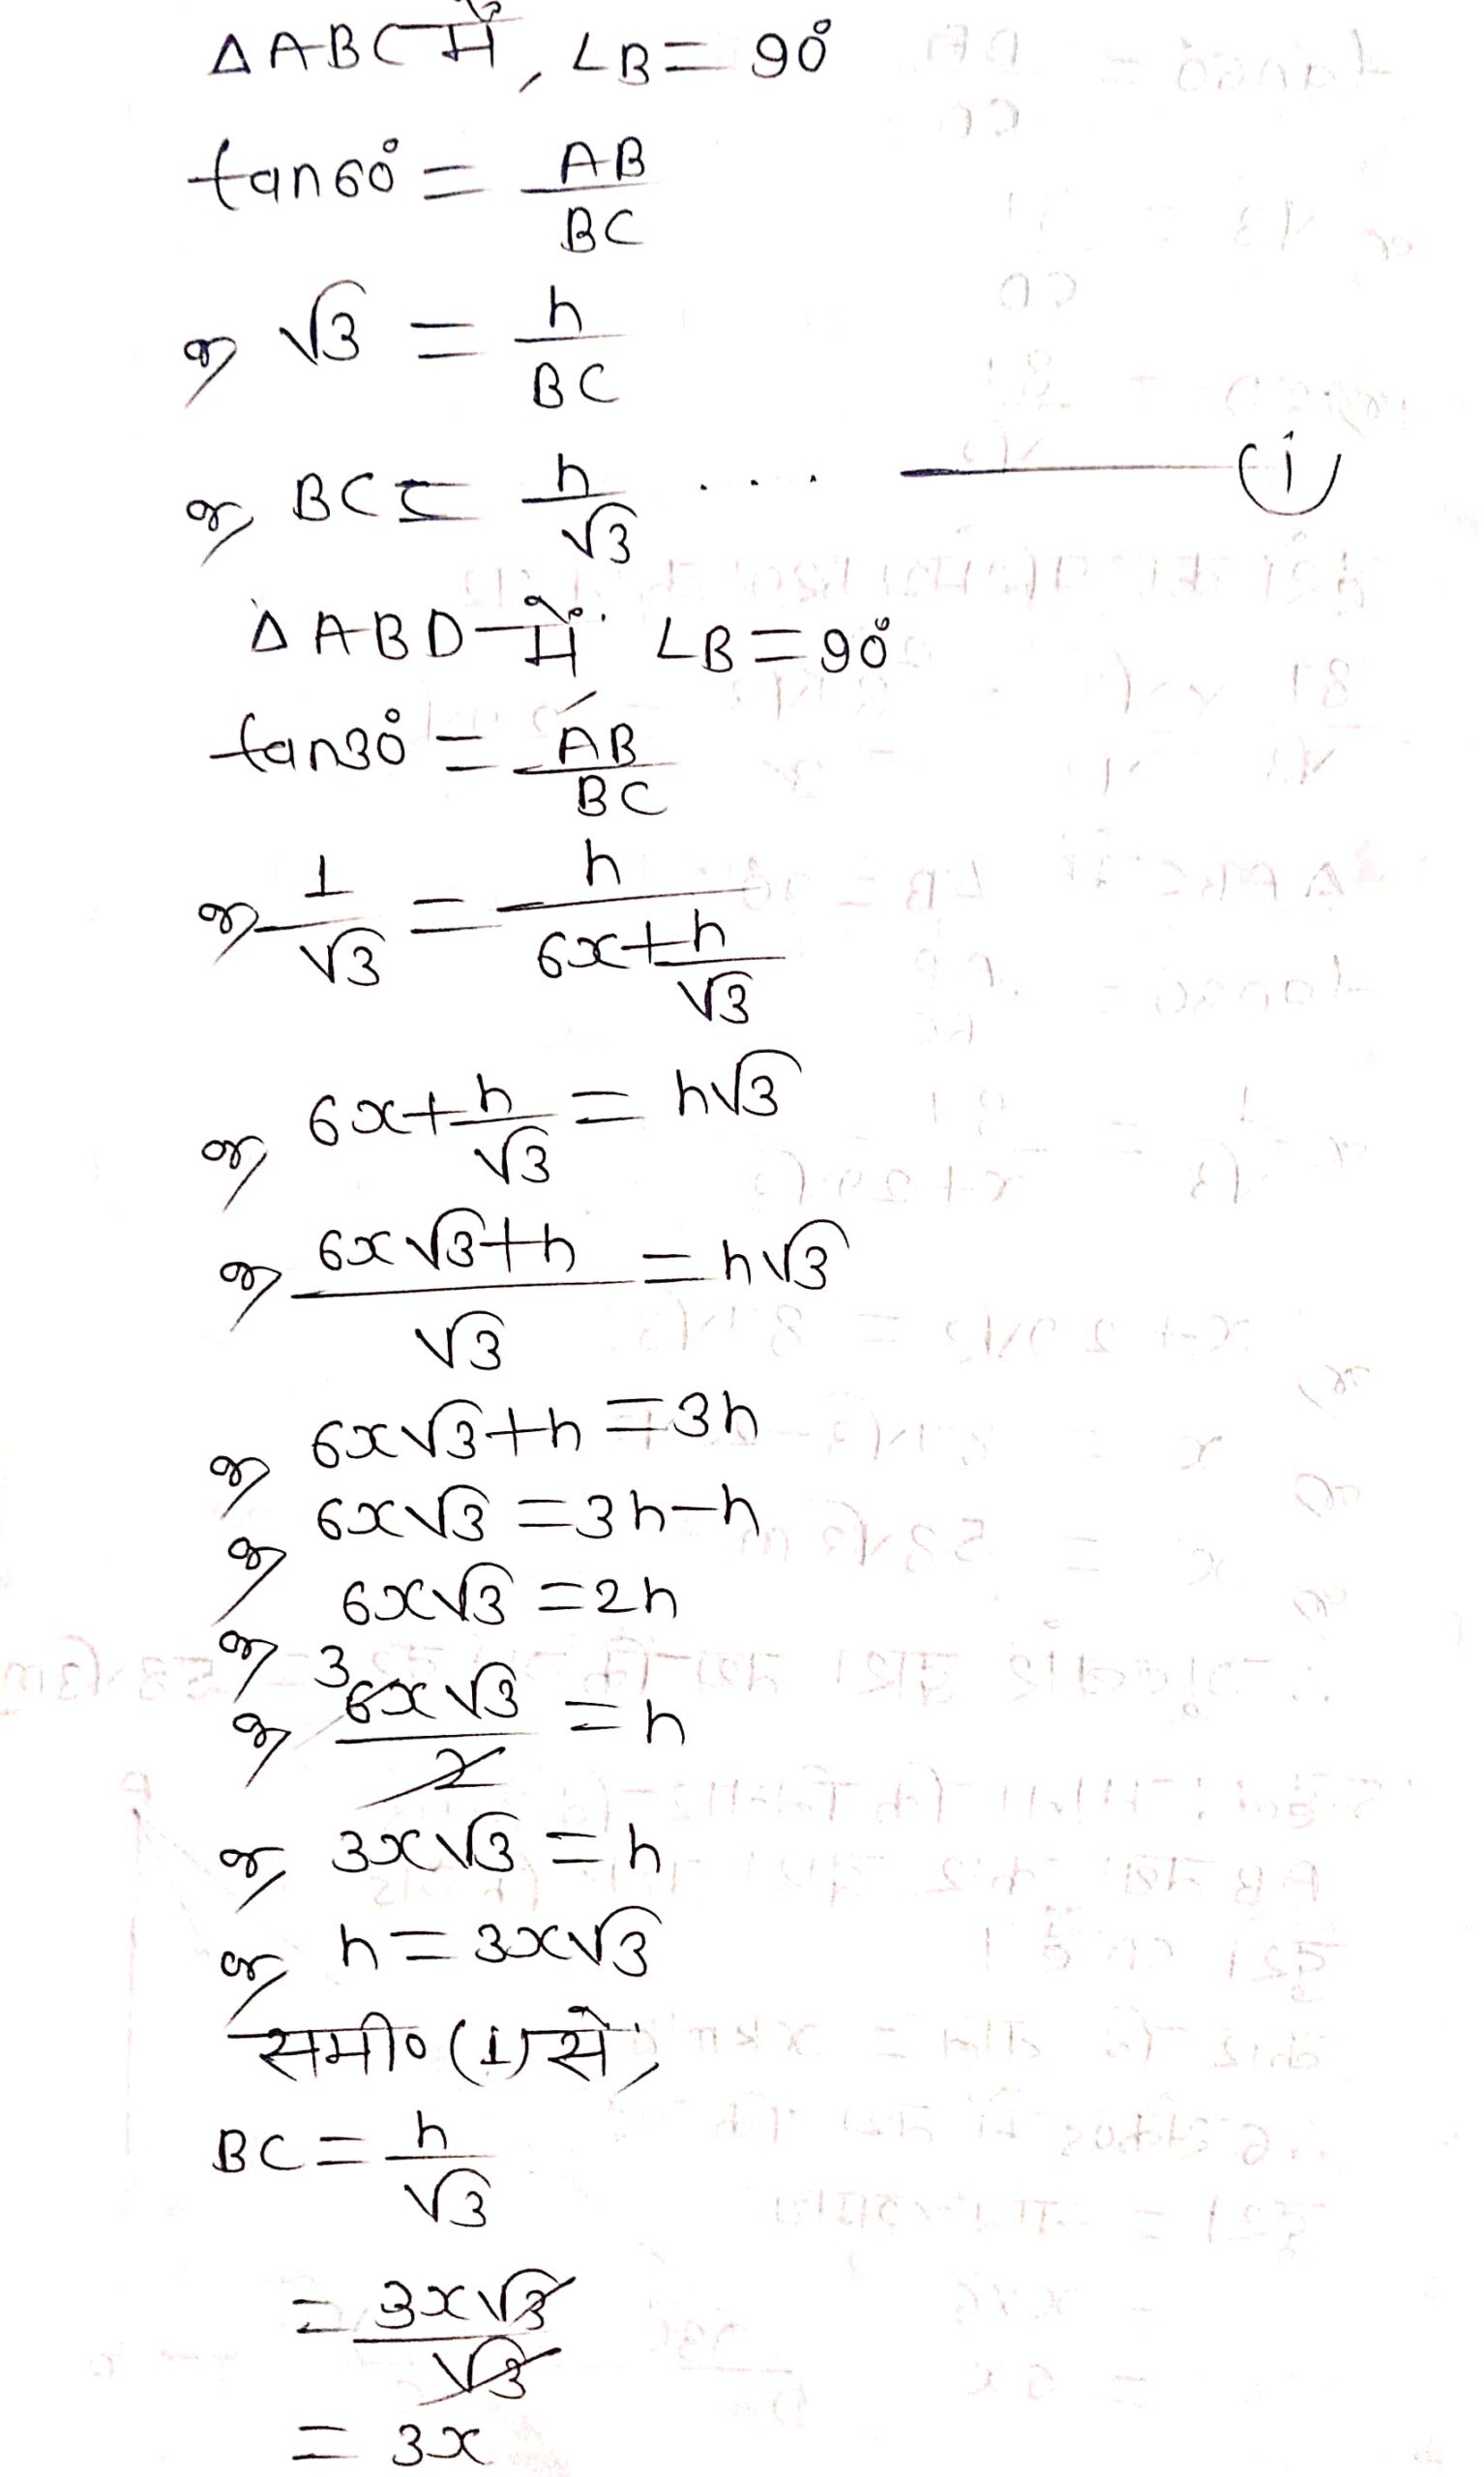 Δ ABC में, ∠B = 90°
tan60° = AB/BC
or, √3 = h/BC
or, BC = h/√3 ... —— (i)
Δ ABD में ∠B = 90°
tan30° = AB/BC
or, 1/√3 = h/(6x + h/√3)
or, 6x + h/√3 = h√3
or, (6x√3 + h)/√3 = h√3
or, 6x√3 + h = 3h
or, 6x√3 = 3h - h
or, 6x√3 = 2h
or, 3 6x√3/2 = h
or, 3x√3 = h
or, h = 3x√3
समी० (1) से,
BC = h/√3
= 3x√3/√3
= 3x